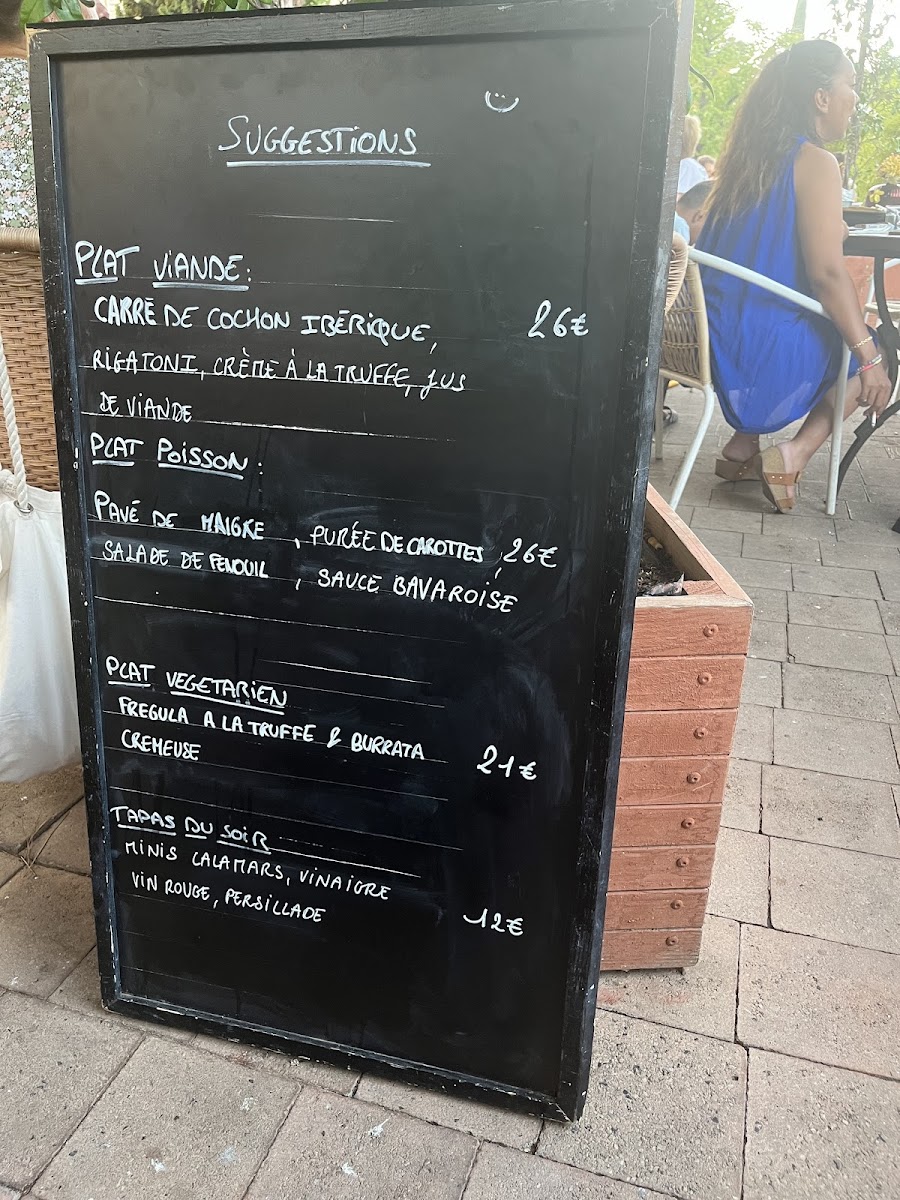 SUGGESTIONS
PLAT VIANDE:
CARRE DE COCHON IBÉRIQUE, 26€
RIGATONI, CRÈME À LA TRUFFE, JUS
DE VIANDE
PLAT POISSON:
PAVÉ DE MAIGRE, PURÉE DE CAROTTES, 26€
SALADE DE FENOUIL, SAUCE BAVAROISE
PLAT VEGETARIEN
FREGULA A LA TRUFFE & BURRATA
CREMEUSE 21€
TAPAS DU SOIR
MINIS CALAMARS, VINAIGRE
VIN ROUGE, PERSILLADE 12€